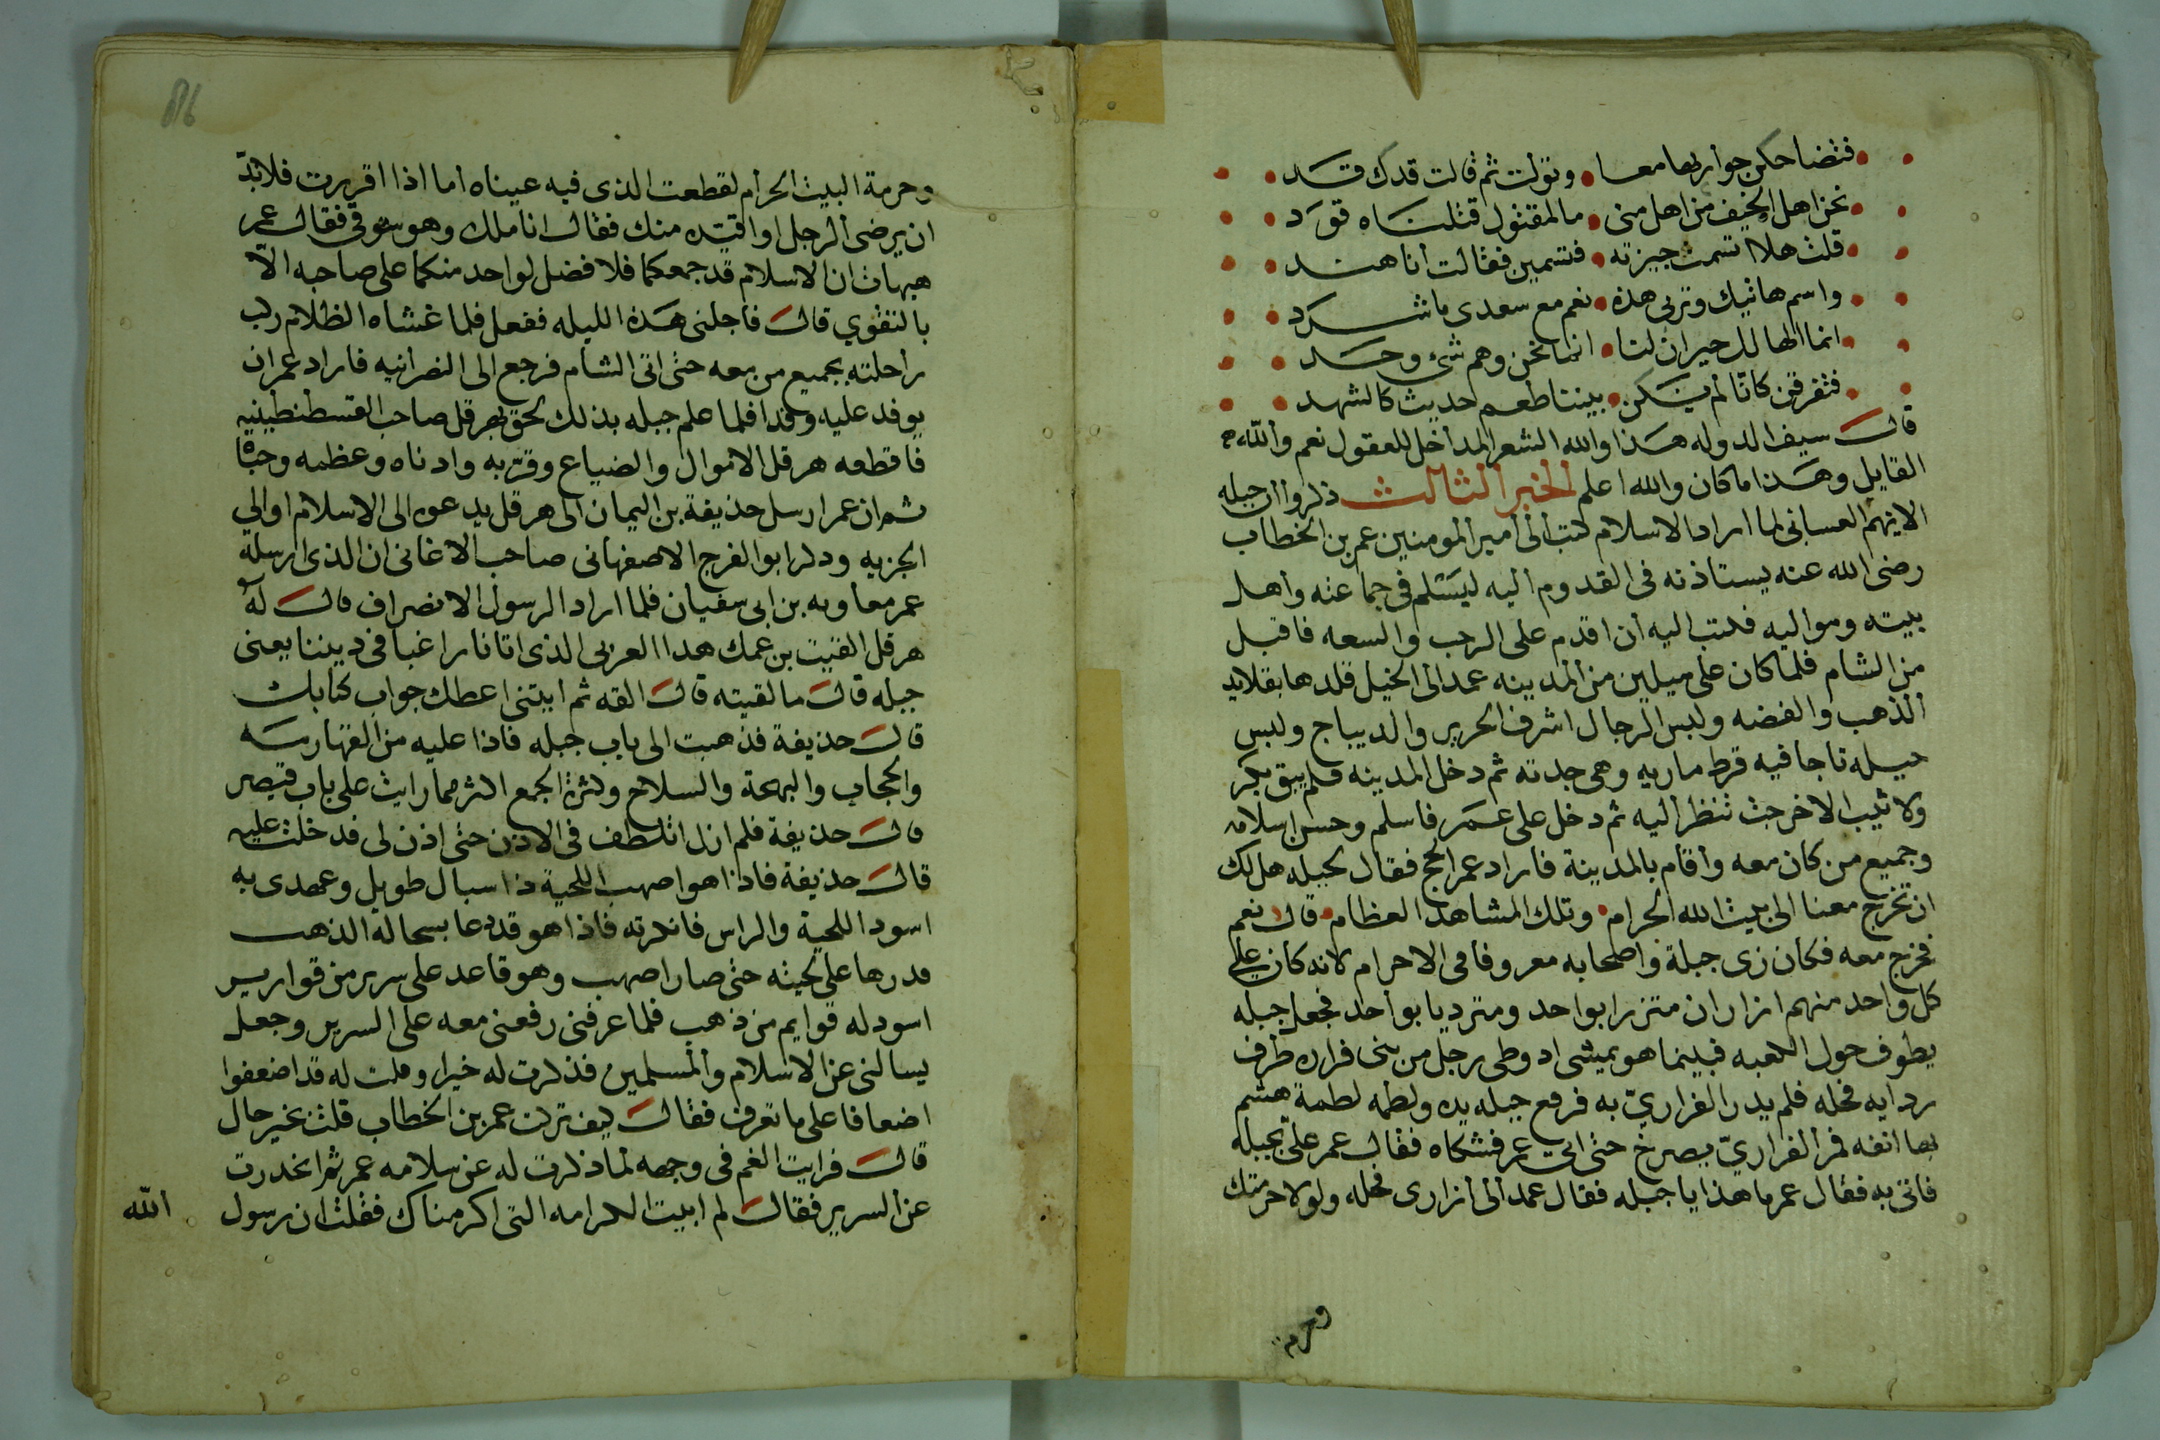 فتضاحكن جواريها معا وتولت ثم قالت قدك قد
نحن اهل الخيف من اهل منى ما لمقتول قتلناه قود
قلت هلا اتسمت جيزته فتسمين فقالت انا هند
واسم هاتيك وتربى هذه نعم مع سعدى ما شرد
انما الها لك حيران لنا انما نحن وهم شئ وحد
فتفرقن كانا لم يكن بيننا طعم حديث كالشهد
قال سيف الدوله هذا والله الشعر المداخل للعقول نعم والله
القايل وهذا ما كان والله اعلم الخبر الثالث ذكروا ان جبله
الايهم الغسانى لما اراد الاسلام كتب الى امير المومنين عمر بن الخطاب
رضى الله عنه يستاذنه فى القدوم اليه ليسلم فى جماعته واهل
بيته ومواليه فكتب اليه ان اقدم على الرحب والسعه فاقبل
من الشام فلما كان على ميلين من المدينه عمد الى الخيل قلدها بقلايد
الذهب والفضه ولبس الرجال اشرف الحرير والديباج ولبس
جبله تاجا فيه قرط ماريه وهى جدته ثم دخل المدينه فلم يبق بكر
ولا ثيب الا خرجت تنظر اليه ثم دخل على عمر فاسلم وحسن اسلامه
وجميع من كان معه واقام بالمدينة فاراد عمر الحج فقال لجبله هل لك
ان تخرج معنا الى بيت الله الحرام وتلك المشاهد العظام قال نعم
فخرج معه فكان زى جبلة واصحابه معروفا فى الاحرام لانه كان على
كل واحد منهم ازاران متزرا بواحد ومترديا بواحد فجعل جبله
يطوف حول الكعبه فبينما هو يمشى اد وطى رجل من بنى فزاره طرف
ردايه فحله فلم يدر الفزارىّ به فرفع جبله يده ولطمه لطمة هشم
بها انفه فمر الفزارىّ يصرخ حتى اتى عمر فشكاه فقال عمر علىّ بجبله
فاتى به فقال عمر ما هذا يا جبله فقال عمد الى ازارى فحله ولولا حرمتك
وحرمة
وحرمة البيت الحرام لقطعت الذى فيه عيناه اما اذا اقررت فلابدّ
ان يرضى الرجل او اقتده منك فقال انا ملك وهو سوقى فقال عمر
هيهات ان الاسلام قد جمعكما فلا فضل لواحد منكما على صاحبه الا
بالتقوي قال فاجلنى هذه الليله ففعل فلما غشاه الظلام ركب
راحلته بجميع من معه حتى اتى الشام فرجع الى النصرانيه فاراد عمر ان
يوفد عليه وفدا فلما علم جبله بذلك لحق بهرقل صاحب القسطنطينيه
فاقطعه هرقل الاموال والضياع وقربه وادناه وعظمه وحباه
ثم ان عمر ارسل حذيفة بن اليمان الى هرقل يدعوه الى الاسلام او الى
الجزيه وذكر ابو الفرج الاصفهانى صاحب الاغانى ان الذى ارسله
عمر معاويه بن ابى سفيان فلما اراد الرسول الانصراف قال له
هرقل القيت بن عمك هدا العربى الذى اتانا راغبا فى ديننا يعنى
جبله قال ما لقيته قال القه ثم ايتنى اعطك جواب كتابك
قال حذيفة فذهبت الى باب جبله فاذا عليه من القهارمه
والحجاب والبهجة والسلاح وكثرة الجمع اكثر مما رايت على باب قيصر
قال حذيفة فلم ازل اتلطف فى الاذن حتى اذن لى فدخلت عليه
قال حذيفة فاذا هو اصهب اللحية ذا سبال طويل وعهدى به
اسود اللحية والراس فانكرته فاذا هو قد دعا بسحالة الذهب
فدرها على لحيته حتى صار اصهب وهو قاعد على سرير من قوارير
اسود له قوايم من ذهب فلما عرفنى رفعنى معه على السرير وجعل
يسالنى عن الاسلام والمسلمين فذكرت له خيرا وقلت له قد اضعفوا
اضعافا على ما تعرف فقال كيف تركت عمر بن الخطاب قلت بخير حال
قال فرايت الغم فى وجهه لما ذكرت له عن سلامه عمر ثم انحدرت
عن السرير فقال لم ابيت الكرامه التى اكرمناك فقلت ان رسول
الله
86